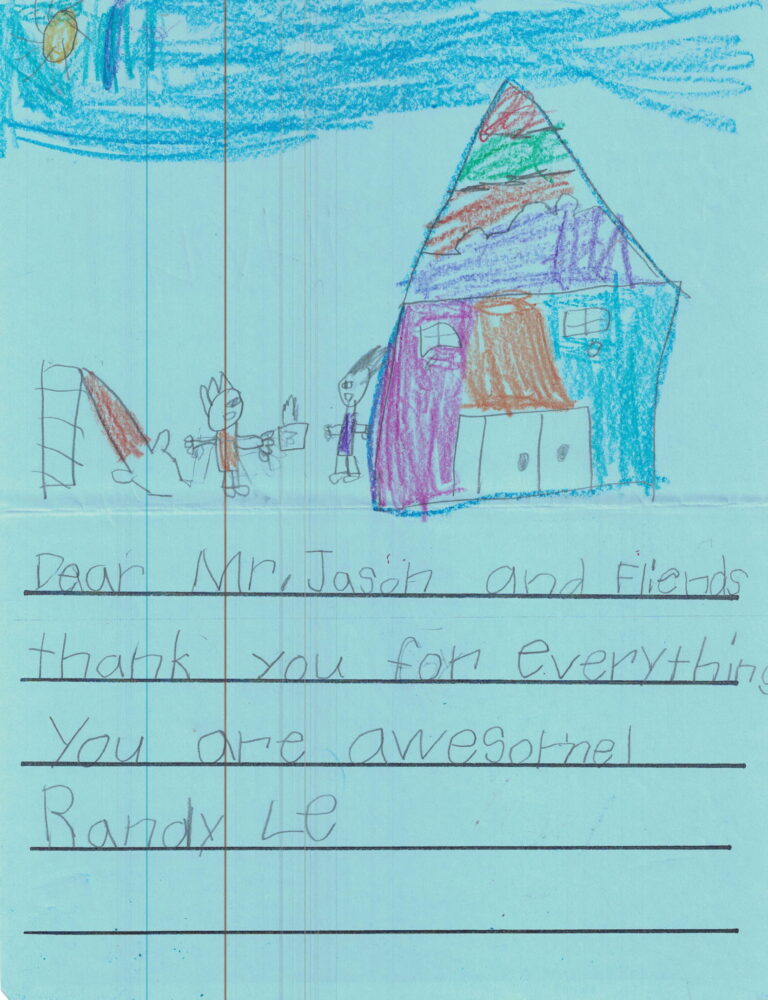 Dear Mr. Jason and Fliends
thank you for everything
You are awesome!
Randy Le